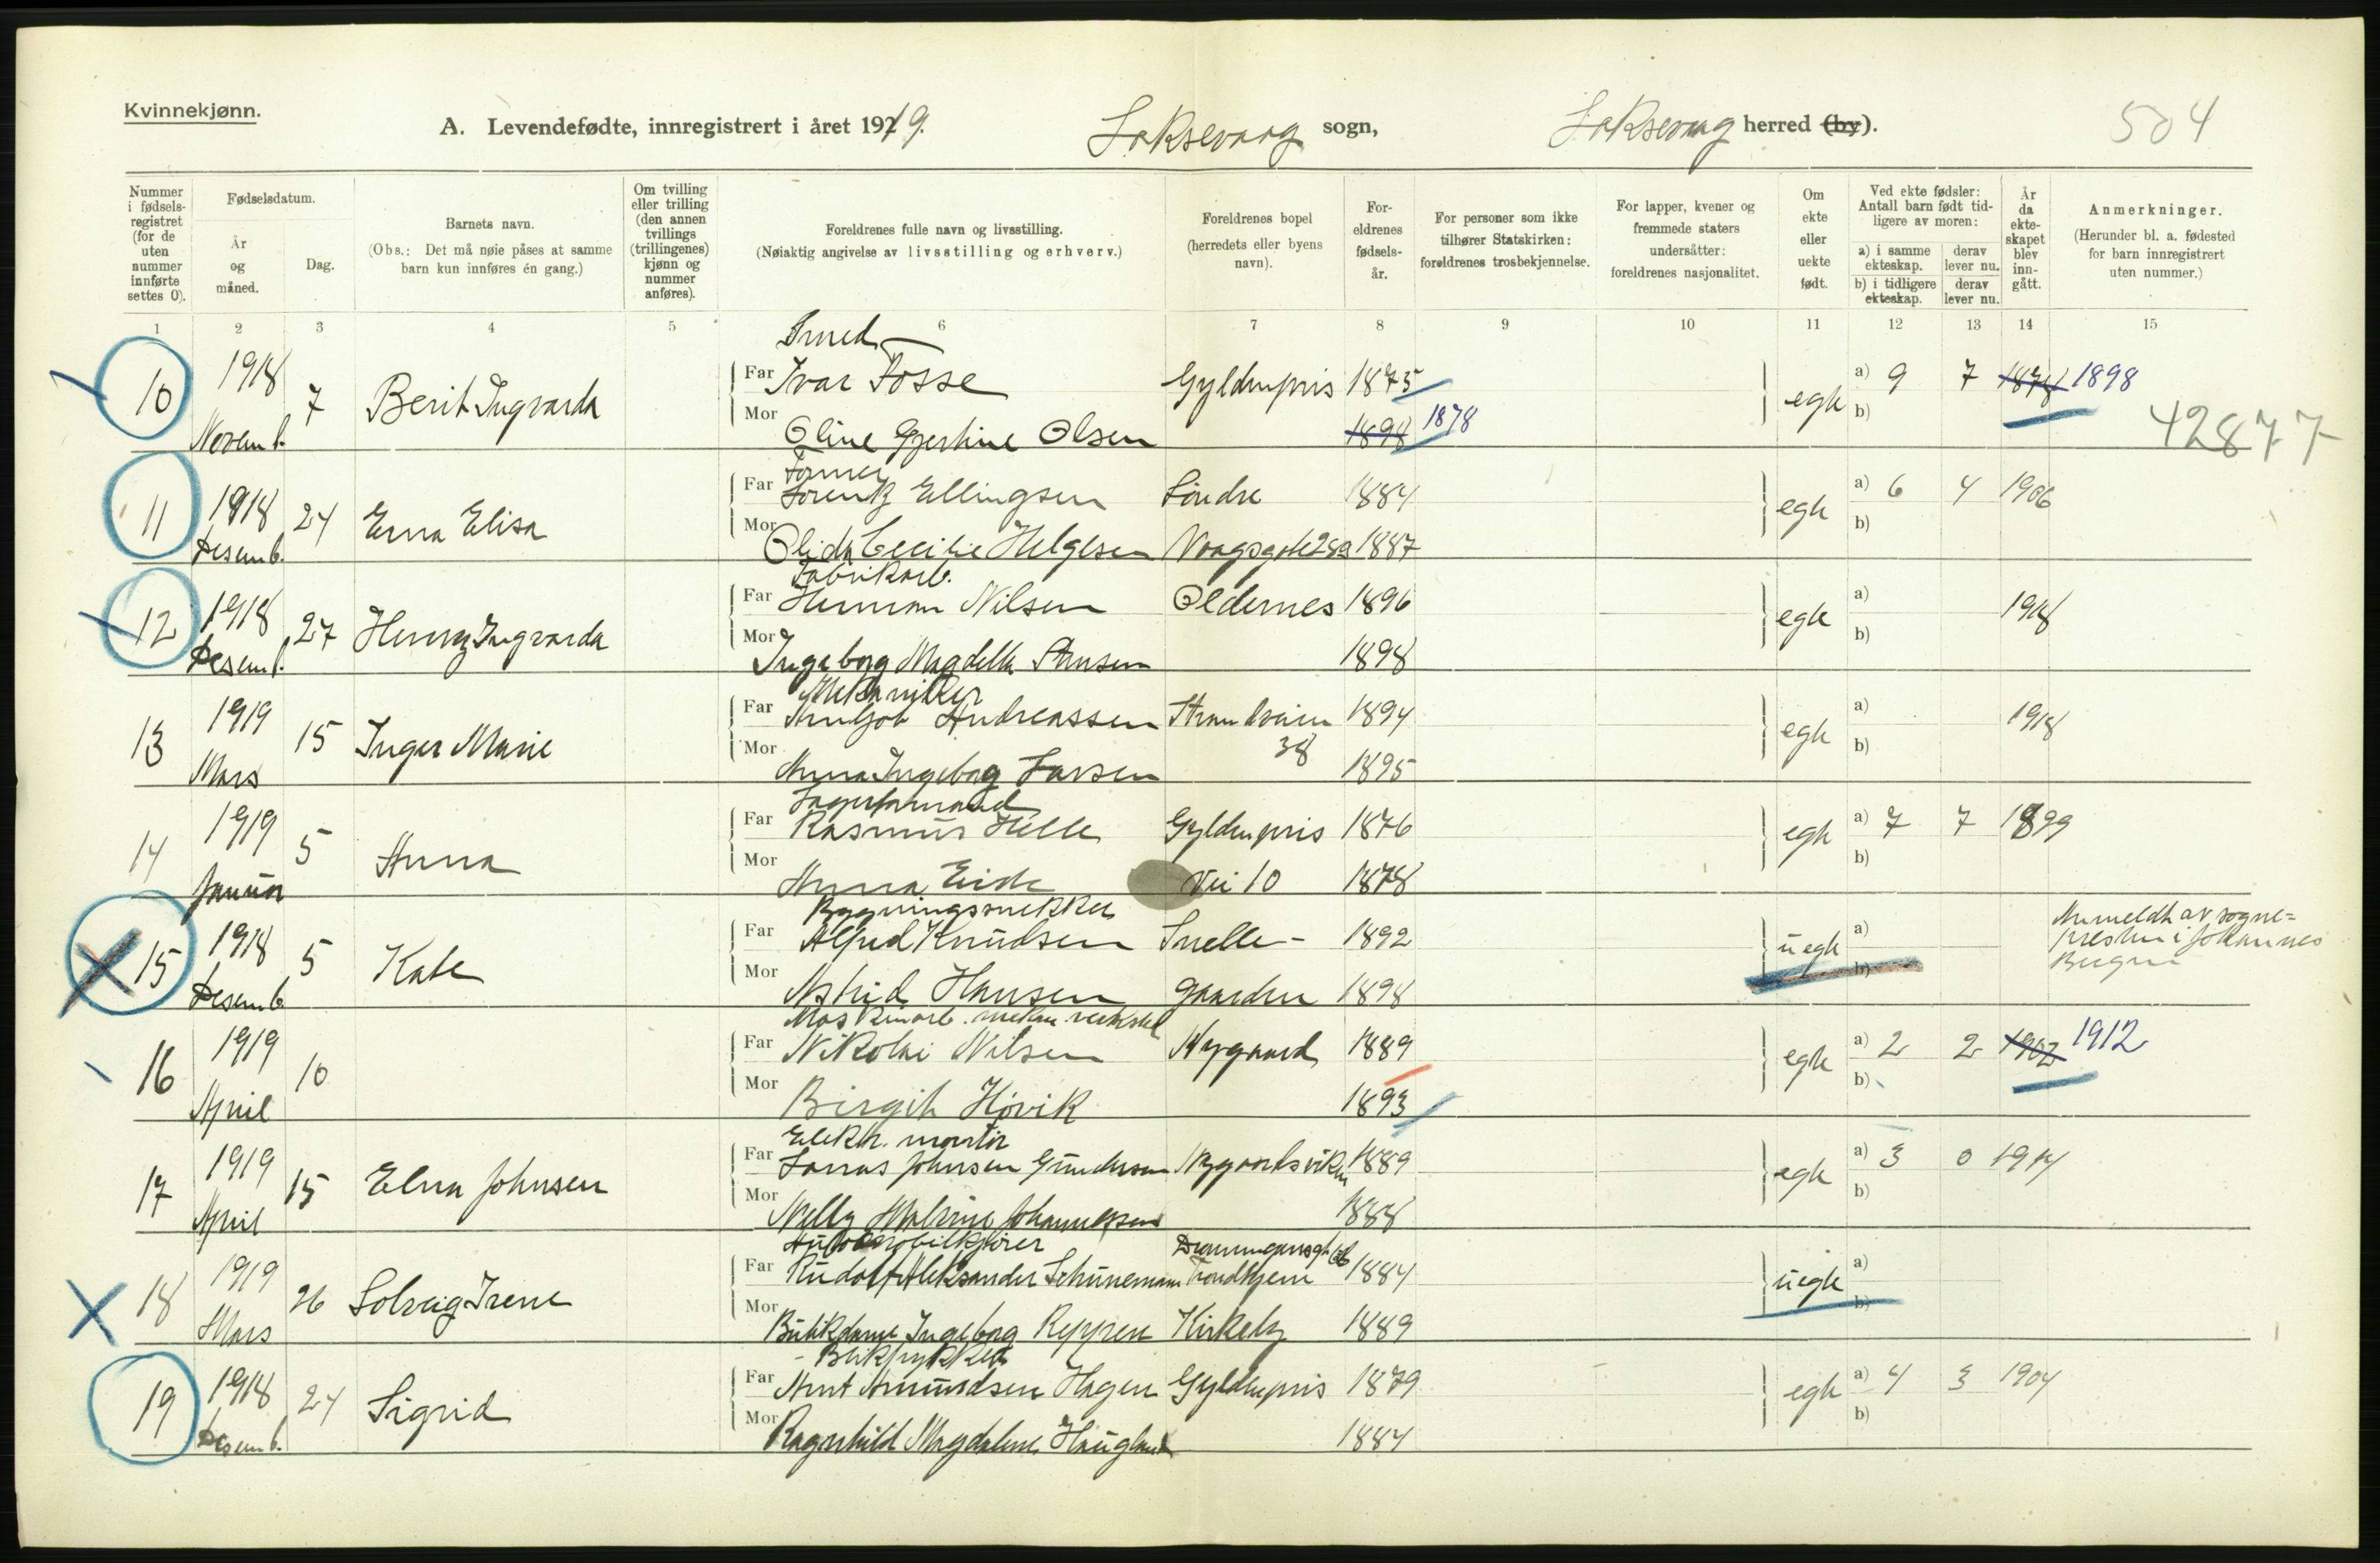 Kvinnekjønn.
A. Levendefødte, innregistrert i året 1919. Laksevaag sogn, Laksevaag herred (by). 504
Nummer i fødselsregistret (for de uten nummer innførte settes 0).
Fødselsdatum.
År og måned.
Dag.
Barnets navn.
(Obs.: Det må nøie påses at samme barn kun innføres én gang.)
Om tvilling eller trilling (den annen tvillings (trillingenes) kjønn og nummer anføres).
Foreldrenes fulle navn og livsstilling.
(Nøiaktig angivelse av livsstilling og erhverv.)
Foreldrenes bopel (herredets eller byens navn).
Foreldrenes fødselsår.
For personer som ikke tilhører Statskirken: foreldrenes trosbekjennelse.
For lapper, kvener og fremmede staters undersåtter: foreldrenes nasjonalitet.
Om ekte eller uekte født.
Ved ekte fødsler: Antall barn født tidligere av moren:
a) i samme ekteskap.
derav lever nu.
b) i tidligere ekteskap.
derav lever nu.
År da ekteskapet blev inngått.
Anmerkninger.
(Herunder bl. a. fødested for barn innregistrert uten nummer.)
1 2 3 4 5 6 7 8 9 10 11 12 13 14 15
Smed
10 1918 Novemb. 7 Berit Ingvarda Far Ivar Fosse Gyldenpris 1875 egte a) 9 7 1878 1898
Mor Oline Gjertine Olsen 1898 1878 b) 42877
Former
11 1918 Desemb. 24 Erna Elisa Far Lorentz Ellingsen Søndre 1884 egte a) 6 4 1906
Mor Olida Cecilie Helgesen Vaagsgate 28a 1887 b)
Fabrikarb.
12 1918 Desemb. 27 Henny Ingvarda Far Herman Nilsen Oldernes 1896 egte a) 1918
Mor Ingeborg Magdella Hansen 1898 b)
Mekaniker
13 1919 Mars 15 Inger Marie Far Andreassen Strandveien 1894 egte a) 1918
Mor Anna Ingeborg Larsen 38 1895 b)
Lagerformand
14 1919 Januar 5 Anna Far Rasmus Helle Gyldenpris 1876 egte a) 7 7 1899
Mor Anna Eide Vei 10 1878 b)
Bygningssnekker
15 1918 Desemb. 5 Kate Far Alfred Knudsen Snelle- 1892 uegte a) Anmeldt av sogne=
presten i Johannes
Mor Astrid Hansen gaarden 1898 b)
Maskinarb. mekan. verksted
16 1919 April 10 Far Nikolai Nilsen Nygaard 1889 egte a) 2 2 1902 1912
Mor Birgit Hövik 1893 b)
Elektr. montør
17 1919 April 15 Elna Johnsen Far Johnsen Gundersen Nygaardsviken 1889 egte a) 3 0 1914
Mor Nelly Malvine Johannessen 1888 b)
Automobilkjører Dronningensgt
18 1919 Mars 26 Solveig Irene Far Rudolf Aleksander Schünemann Trondhjem 1884 uegte a)
Mor Butikdame Ingeborg Reppen Kirkeby 1889 b)
Bliktrykker
19 1918 Desemb. 24 Sigrid Far Arnt Amundsen Hagen Gyldenpris 1879 egte a) 4 3 1904
Mor Ragnhild Magdalene Haugland 1884 b)